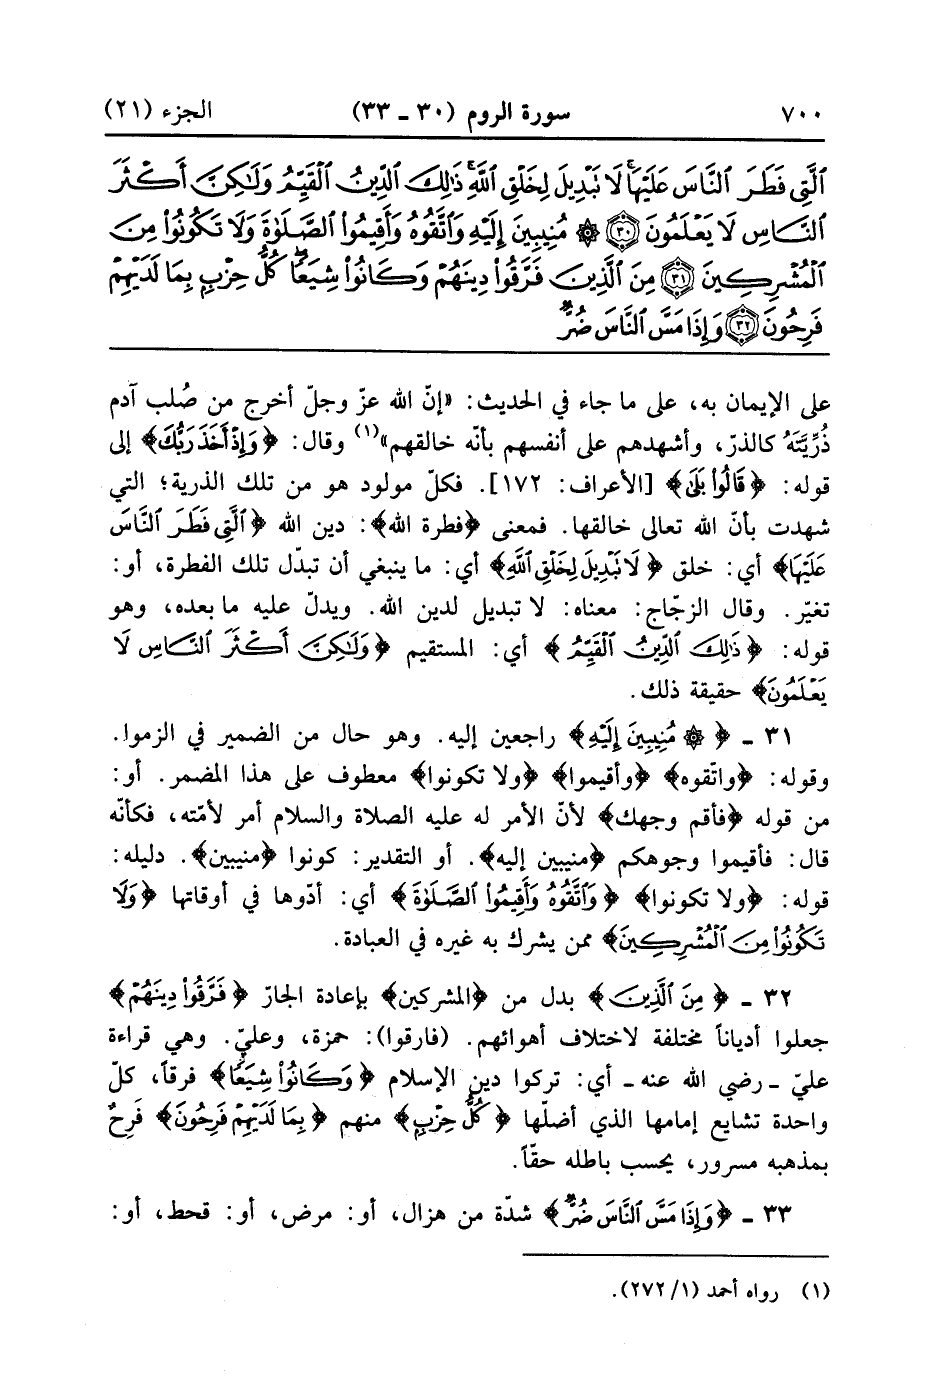 ٧٠٠ سورة الروم (٣٠ ـ ٣٣) الجزء (٢١)
ٱلَّتِى فَطَرَ ٱلنَّاسَ عَلَيْهَا ۚ لَا تَبْدِيلَ لِخَلْقِ ٱللَّهِ ۚ ذَٰلِكَ ٱلدِّينُ ٱلْقَيِّمُ وَلَٰكِنَّ أَكْثَرَ
ٱلنَّاسِ لَا يَعْلَمُونَ ﴿٣٠﴾ ۞ مُنِيبِينَ إِلَيْهِ وَٱتَّقُوهُ وَأَقِيمُوا۟ ٱلصَّلَوٰةَ وَلَا تَكُونُوا۟ مِنَ
ٱلْمُشْرِكِينَ ﴿٣١﴾ مِنَ ٱلَّذِينَ فَرَّقُوا۟ دِينَهُمْ وَكَانُوا۟ شِيَعًا ۖ كُلُّ حِزْبٍۭ بِمَا لَدَيْهِمْ
فَرِحُونَ ﴿٣٢﴾ وَإِذَا مَسَّ ٱلنَّاسَ ضُرٌّ
على الإيمان به، على ما جاء في الحديث: «إنّ الله عزّ وجلّ أخرج من صُلب آدم
ذُرِّيَّتَهُ كالذرّ، وأشهدهم على أنفسهم بأنّه خالقهم»(١) وقال: ﴿وَإِذْ أَخَذَ رَبُّكَ﴾ إلى
قوله: ﴿قَالُوا۟ بَلَىٰ﴾ [الأعراف: ١٧٢]. فكلّ مولود هو من تلك الذرية؛ التي
شهدت بأنّ الله تعالى خالقها. فمعنى ﴿فطرة الله﴾: دين الله ﴿ٱلَّتِى فَطَرَ ٱلنَّاسَ
عَلَيْهَا﴾ أي: خلق ﴿لَا تَبْدِيلَ لِخَلْقِ ٱللَّهِ﴾ أي: ما ينبغي أن تبدّل تلك الفطرة، أو:
تغيّر. وقال الزجّاج: معناه: لا تبديل لدين الله. ويدلّ عليه ما بعده، وهو
قوله: ﴿ذَٰلِكَ ٱلدِّينُ ٱلْقَيِّمُ﴾ أي: المستقيم ﴿وَلَٰكِنَّ أَكْثَرَ ٱلنَّاسِ لَا
يَعْلَمُونَ﴾ حقيقة ذلك.
٣١ ـ ﴿۞ مُنِيبِينَ إِلَيْهِ﴾ راجعين إليه. وهو حال من الضمير في الزموا.
وقوله: ﴿واتّقوه﴾ ﴿وأقيموا﴾ ﴿ولا تكونوا﴾ معطوف على هذا المضمر. أو:
من قوله ﴿فأقم وجهك﴾ لأنّ الأمر له عليه الصلاة والسلام أمر لأمّته، فكأنّه
قال: فأقيموا وجوهكم ﴿منيبين إليه﴾. أو التقدير: كونوا ﴿منيبين﴾. دليله:
قوله: ﴿ولا تكونوا﴾ ﴿وَٱتَّقُوهُ وَأَقِيمُوا۟ ٱلصَّلَوٰةَ﴾ أي: أدّوها في أوقاتها ﴿وَلَا
تَكُونُوا۟ مِنَ ٱلْمُشْرِكِينَ﴾ ممن يشرك به غيره في العبادة.
٣٢ ـ ﴿مِنَ ٱلَّذِينَ﴾ بدل من ﴿المشركين﴾ بإعادة الجارّ ﴿فَرَّقُوا۟ دِينَهُمْ﴾
جعلوا أدياناً مختلفة لاختلاف أهوائهم. (فارقوا): حمزة، وعليّ. وهي قراءة
عليّ ـ رضي الله عنه ـ أي: تركوا دين الإسلام ﴿وَكَانُوا۟ شِيَعًا﴾ فرقاً، كلّ
واحدة تشايع إمامها الذي أضلّها ﴿كُلُّ حِزْبٍ﴾ منهم ﴿بِمَا لَدَيْهِمْ فَرِحُونَ﴾ فَرِحٌ
بمذهبه مسرور، يحسب باطله حقّاً.
٣٣ ـ ﴿وَإِذَا مَسَّ ٱلنَّاسَ ضُرٌّ﴾ شدّة من هزال، أو: مرض، أو: قحط، أو:
(١) رواه أحمد (١/ ٢٧٢).